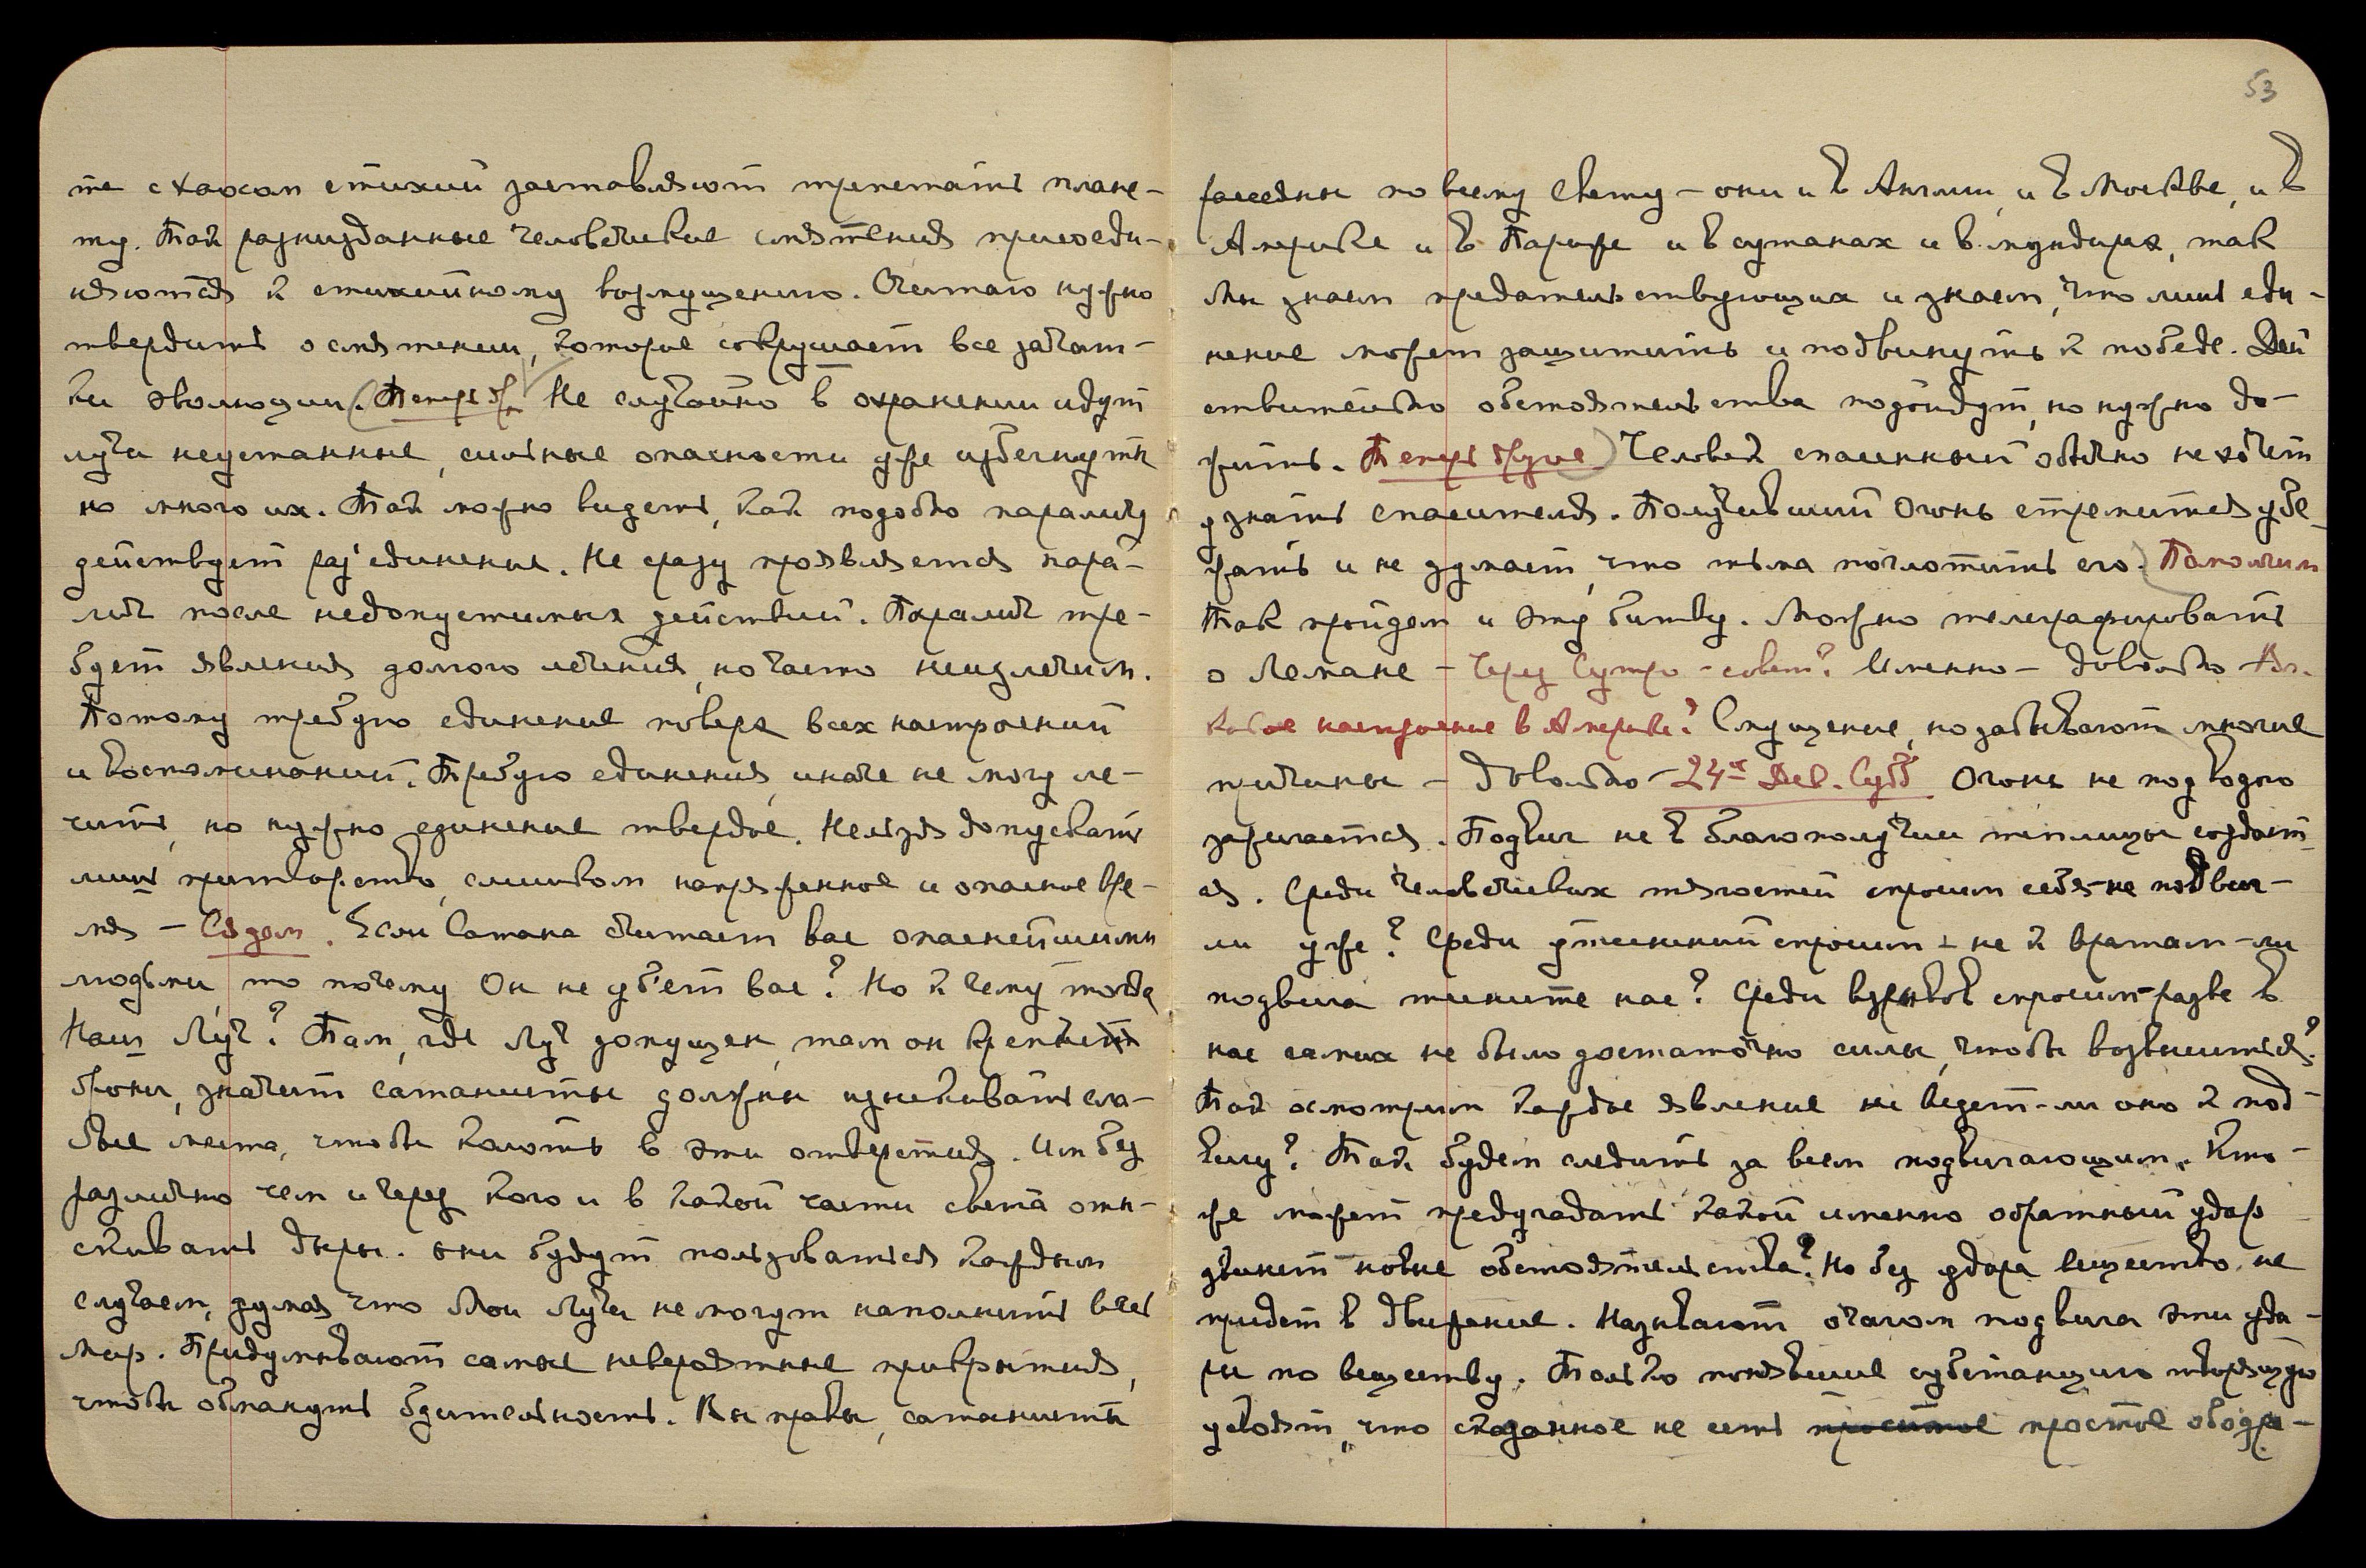 те с хаосом стихий заставляют трепетать плане-
ту. Так разнузданные человеческие смятения присоеди-
няются к стихийному возмущению. Считаю нужно
твердить о смятении, которое сокрушает все зачат-
ки эволюции. (Теперь др. Не случайно в охранении идут
лучи неустанные, сильные опасности уже избегнуты
но много их. Так можно видеть, как подобно параличу
действует раз'единение. Не сразу проявляется пара-
лич после недопустимых действий. Паралич тре-
бует явления долгого лечения, но часто неизлечим.
Потому требую единение поверх всех настроений
и воспоминаний. Требую единения, иначе не могу ле-
чить, но нужно единение твердое. Нельзя допускать
лишь притворство, слишком напряженное и опасное вре-
мя – Сядем. Если Сатана считает вас опаснейшими
людьми, то почему Он не убьет вас? Но к чему тогда
Наш Луч? Там, где Луч допущен, там он крепче
брони, значит сатанисты должны изыскивать сла-
бые места, чтобы колоть в эти отверстия. Им без
различно чем и через кого и в какой части света оты-
скивать дыры. они будут пользоваться каждым
случаем, думая что Мои Лучи не могут наполнить весь
мир. Придумывают самые невероятные прикрытия,
чтобы обмануть бдительность. Вы правы, сатанисты
53
рассеяны по всему свету – они и в Англии, и в Москве, и в
Америке и в Париже и в сутанах и в мундирах, так
Мы знаем предательствующих и знаем, что лишь еди-
нение может защитить и подвинуть к победе. Дей
ствительно обстоятельства подойдут, но нужно до-
жить. Теперь другое) Человек спасенный обычно не хочет
узнать спасителя. Получивший Огонь стремится убе-
жать и не думает, что тьма поглотить его. (Помолчим
Так пройдем и эту битву. Можно телеграфировать
о Лемане – Через Сутро – совет? Именно – довольно Вл.
Какое настроение в Америке? Смущение, но забывают многие
причины – Довольно – 24ое Дев. Субб. Огонь не под водою
зажигается. Подвиг не в благополучии теплицы создает-
ся. Среди человеческих тягостей спросим себя – не подвиг-
ли уже? Среди утеснений спросим – не к вратам-ли
подвига тисните нас? Среди взрывов спросим – разве в
нас самих не было достаточно силы, чтобы возвыситься?
Так осмотрим каждое явление не ведет-ли оно к под-
вигу? Так будем следить за всем подвигающим. Кто-
же может предугадать какой именно обратный удар
двинет новые обстоятельства? Но без удара вещество не
придет в движение. Называют очагом подвига эти уда-
ры по веществу. Только понявшие субстанцию творящую
усвоят, что сказанное не есть простое простое ободре-